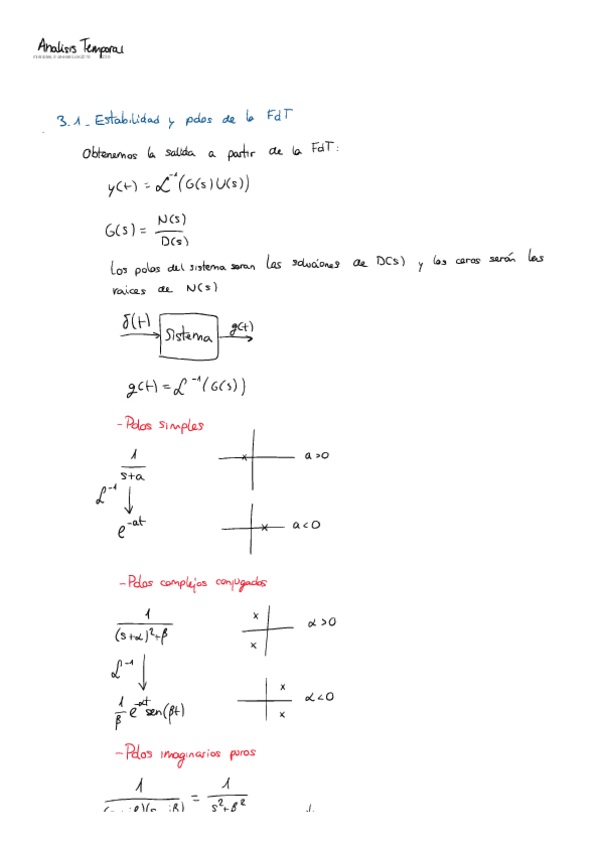 Analisis Temporal
3.1- Estabilidad y polos de la FdT
Obtenemos la salida a partir de la FdT:
y(t) = ℒ⁻¹(G(s)U(s))
G(s) = N(s)/D(s)
Los polos del sistema seran las soluciones de D(s) y los ceros serán las
raices de N(s)
δ(t) Sistema g(t)
g(t) = ℒ⁻¹(G(s))
- Polos simples
1/(s+a) a>0
ℒ⁻¹
e^(-at) a<0
- Polos complejos conjugados
1/((s+α)²+β) α>0
ℒ⁻¹
1/β e^(-αt) sen(βt) α<0
- Polos imaginarios puros
1 = 1/(s²+β²)